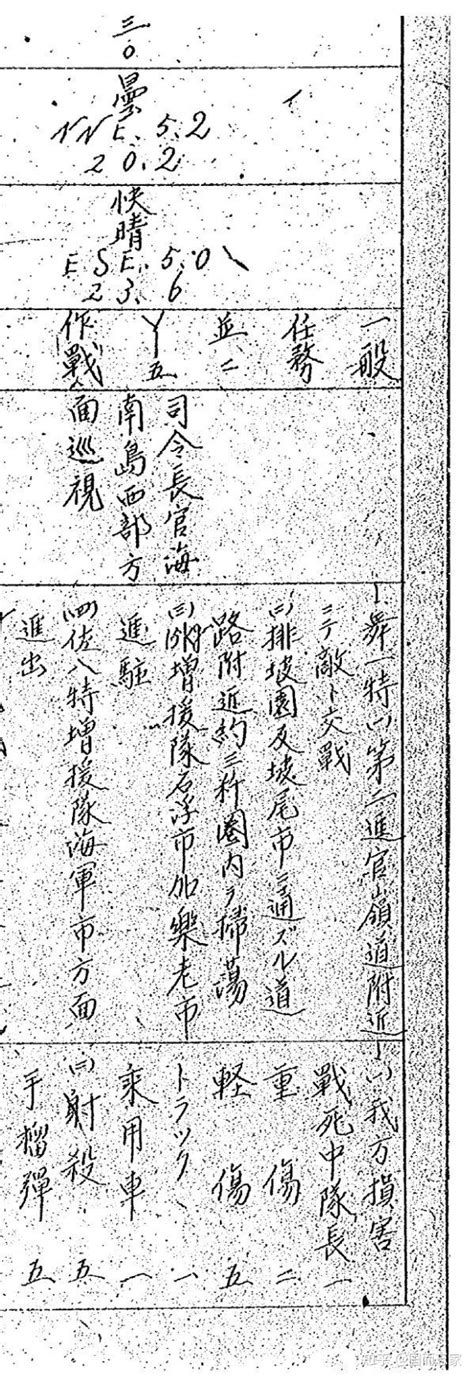 三〇
曇
NNE. 5.2
20.2
快晴
ESE. 5.0
23.6
一般
任務
並ニ
Y五
作戰
司令長官海
南島西部方
面巡視
一舞一特㈠第二進官嶺道附近
ニテ敵ト交戰
㈡排坡園及坡尾市ニ通ズル道
路附近約三粁圏内ヲ掃蕩
㈢増援隊石浮市加樂老市
進駐
㈣佐八特増援隊海軍市方面
進出
一㈠我方損害
戰死中隊長 一
重傷 二
軽傷 五
トラック 一
乘用車 一
㈡射殺 五
手榴彈 五
知乎